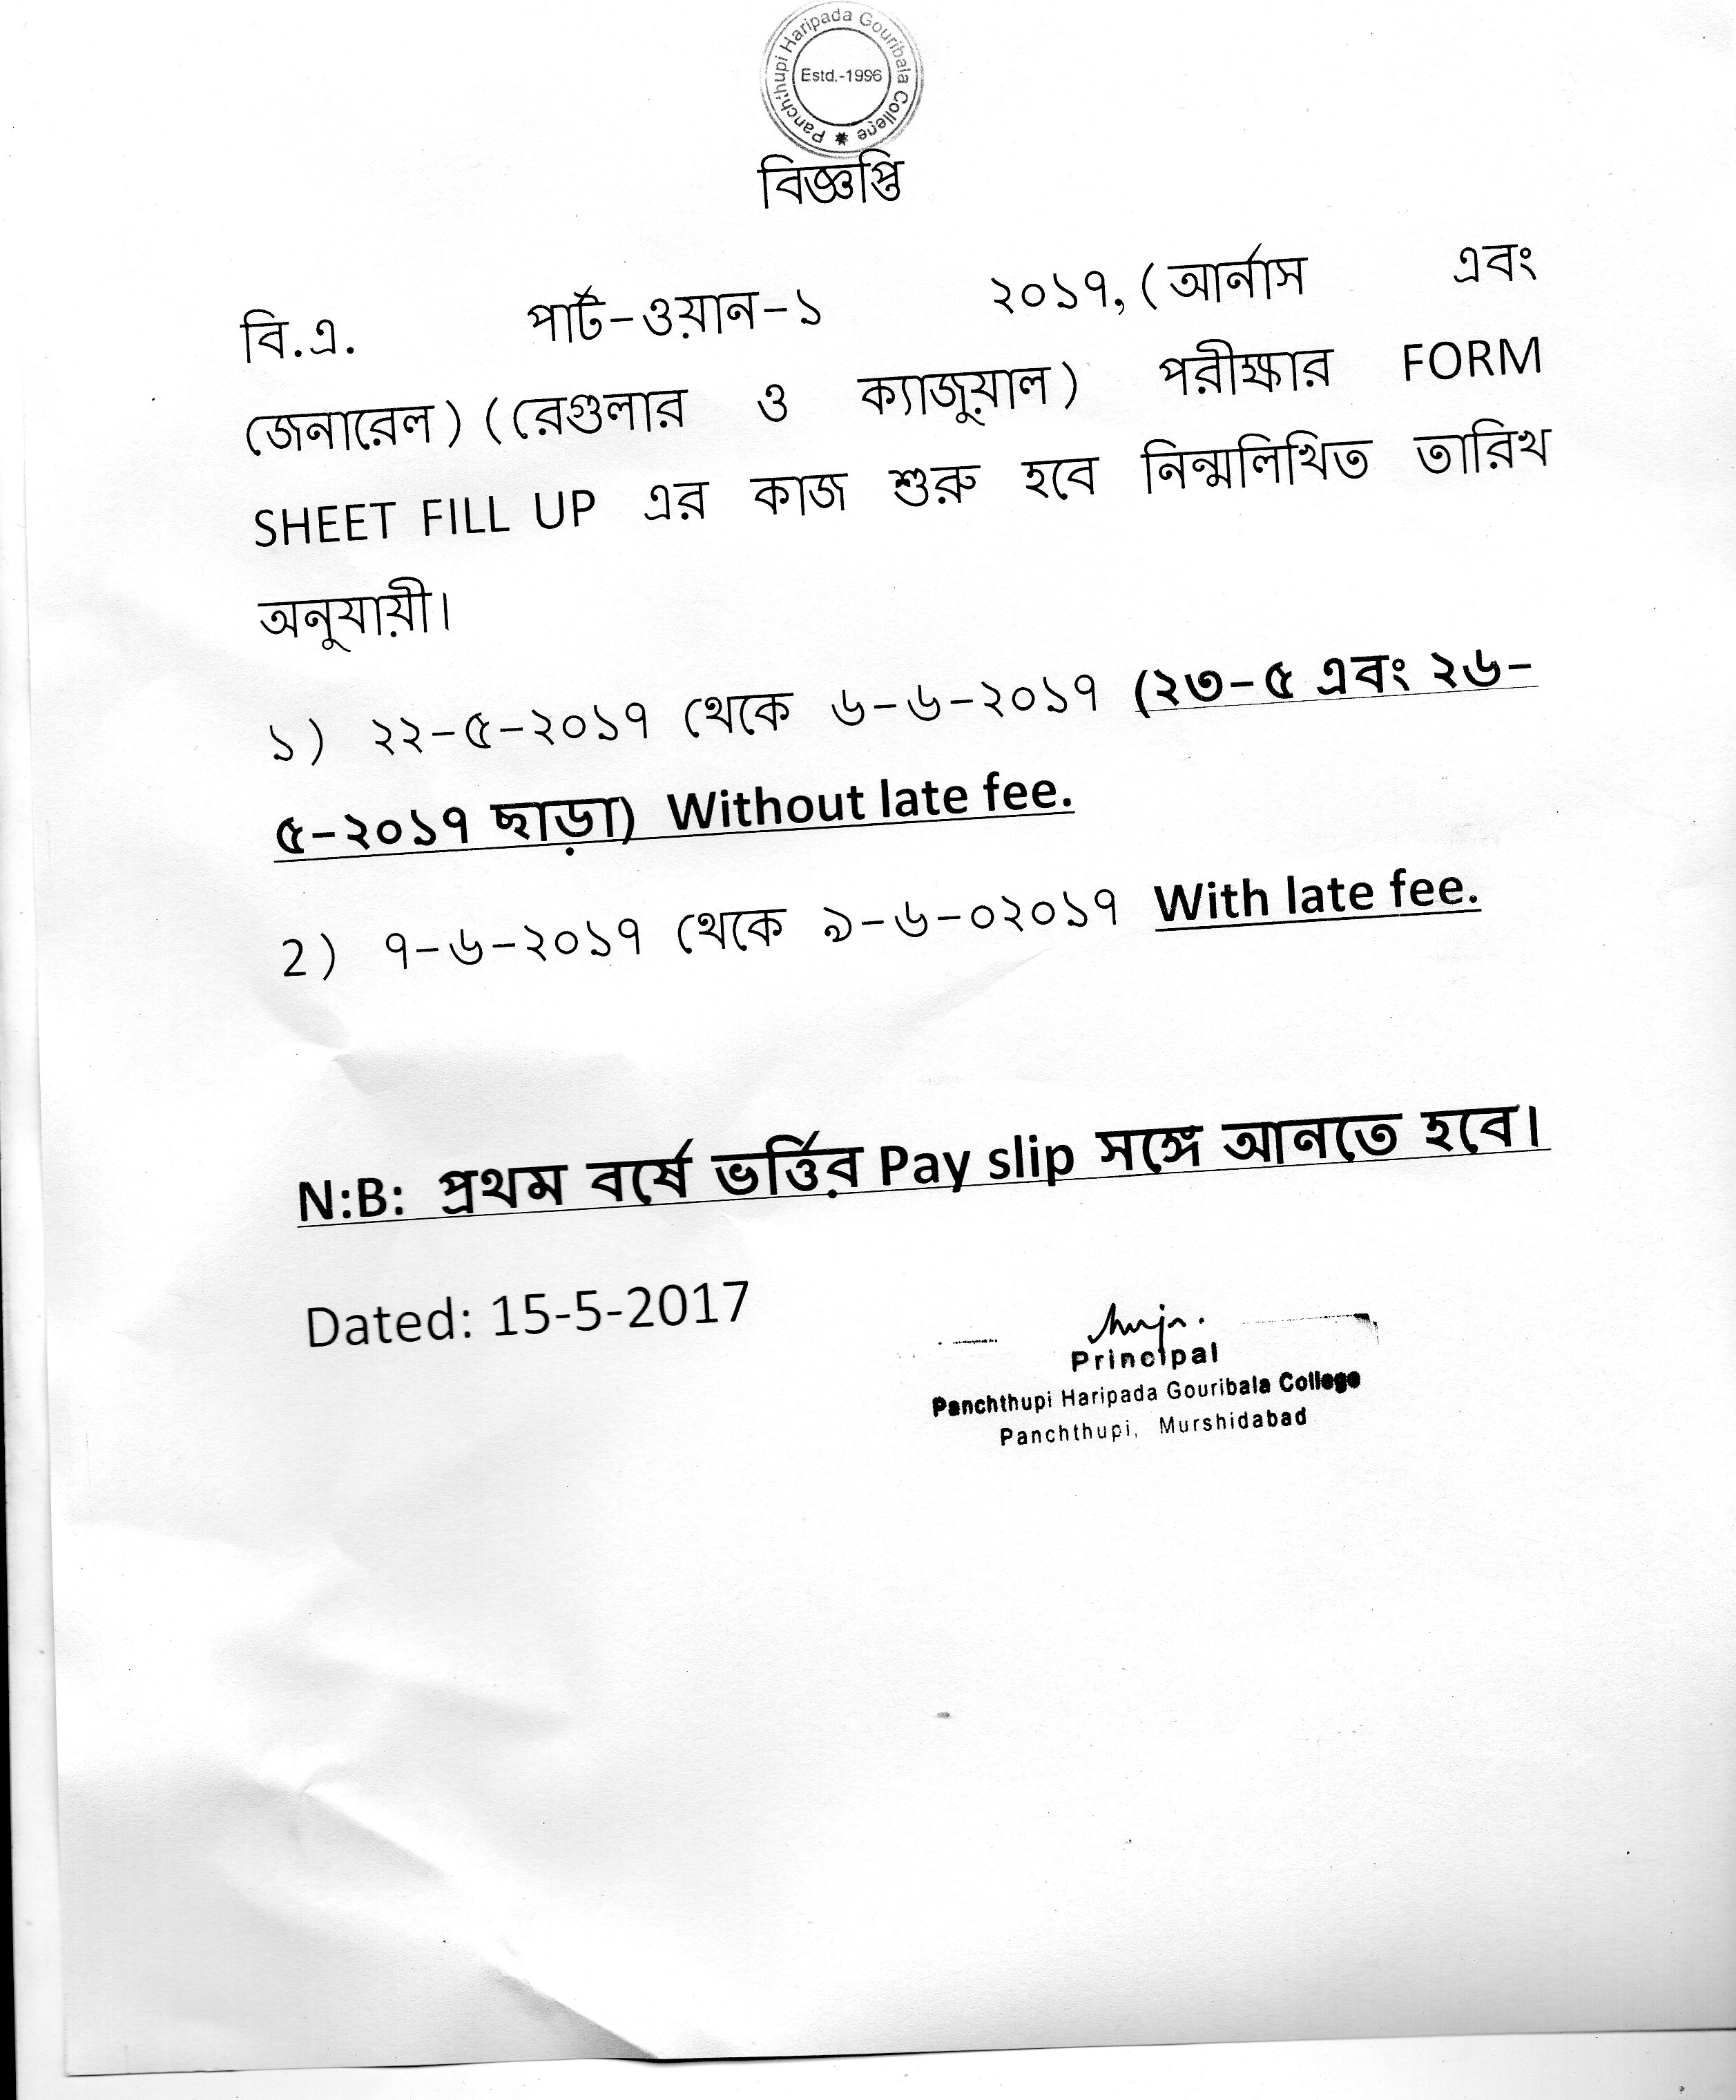 Panchthupi Haripada Gouribala College
Estd.-1996
বিজ্ঞপ্তি
বি.এ. পার্ট-ওয়ান-১ ২০১৭,(আর্নাস এবং
জেনারেল)(রেগুলার ও ক্যাজুয়াল) পরীক্ষার FORM
SHEET FILL UP এর কাজ শুরু হবে নিন্মলিখিত তারিখ
অনুযায়ী।
১) ২২-৫-২০১৭ থেকে ৬-৬-২০১৭ (২৩-৫ এবং ২৬-
৫-২০১৭ ছাড়া) Without late fee.
2) ৭-৬-২০১৭ থেকে ৯-৬-০২০১৭ With late fee.
N:B: প্রথম বর্ষে ভর্ত্তির Pay slip সঙ্গে আনতে হবে।
Dated: 15-5-2017
Principal
Panchthupi Haripada Gouribala College
Panchthupi, Murshidabad